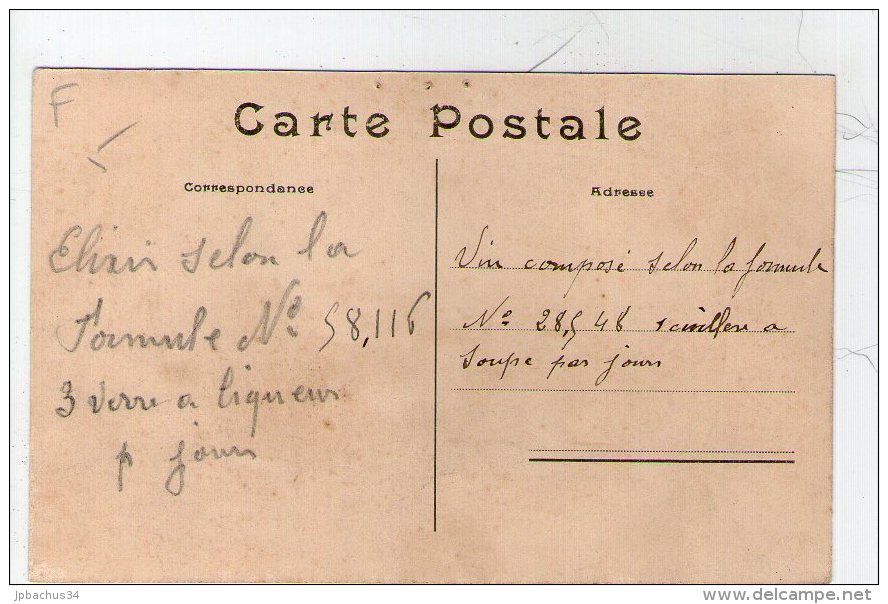 F
Carte Postale
Correspondance
Elixir selon la
Formule No 58,116
3 verre a liqueur
p jours
Adresse
Vin composé selon la formule
No 28,548 1 cuillere a
soupe par jours
jpbachus34
delcampe.net